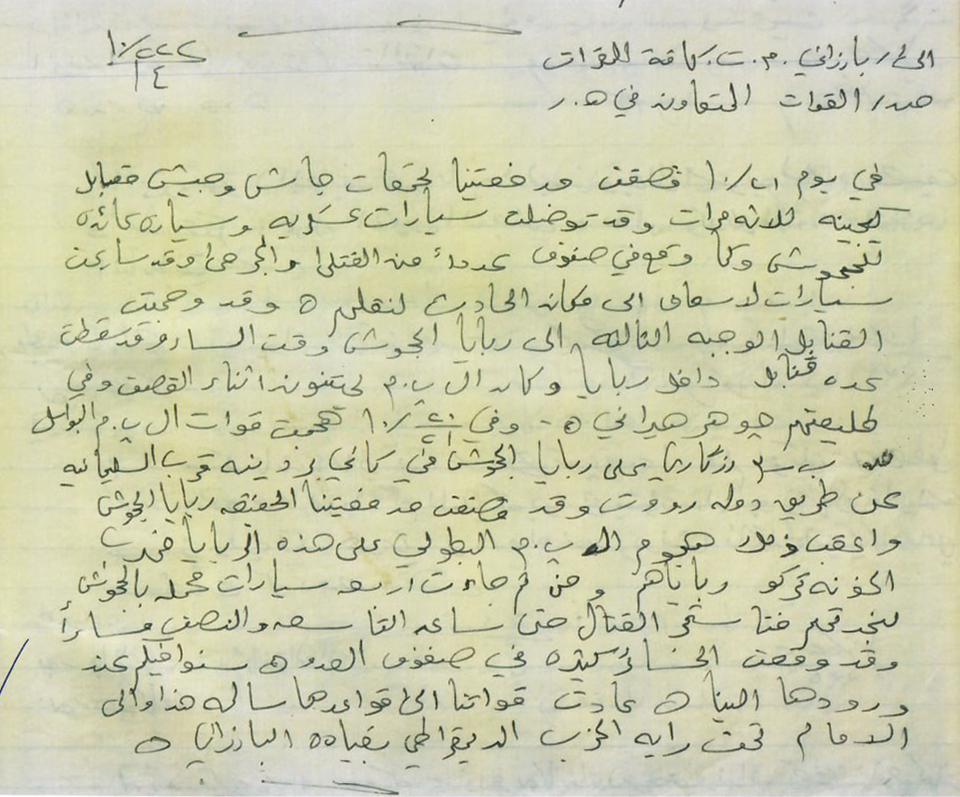 الى / بارزاني . م . ت . كافة المقرات
١٠/٢٢٢
٤
صدر القوات المتعاونه في ه . ر
في يوم ١٠/٢١ قصفت مدفعيتنا تجمعات جاش وجيش مقابل
ثلاثه مرات وقد سيارات عسكريه وسياره عائده
للجحوش وكما وقع في صفوف عدداً من القتلى والجرحى وقد سارعت
سيارات لاسعاف الى مكان الحادث لنقلهم ه وقد وجهت
القنابل الوجبه الثالثه الى ربايا الجحوش وقت المساء وقد سقطت
عده قنابل داخل ربايا وكان ال ب . م اثناء القصف وفي
طليعتهم جوهر هيراني ه - وفي ١٠/٢٠ هجمت قوات ال ب . م البواسل
رزكاري على ربايا الجحوش في كاني قرب السليمانيه
عن طريق دوله رووت وقد قصفت مدفعيتنا الخفيفه ربايا الجحوش
واعقب ذلك هجوم ال ب . م البطولي على هذه الربايا
الخونه تركو رباياهم ومن ثم جاءت اربعه سيارات محمله بالجحوش
لنجدتهم استمر القتال حتى ساعه التاسعه والنصف مساءاً
وقد وقعت الخسائر كثيره في صفوف العدو ه سنوافيكم عند
ورودها الينا ه عادت قواتنا الى قواعدها سالمه هذا والى
الامام تحت رايه الحزب الديمقراطي بقياده البارزاني ه